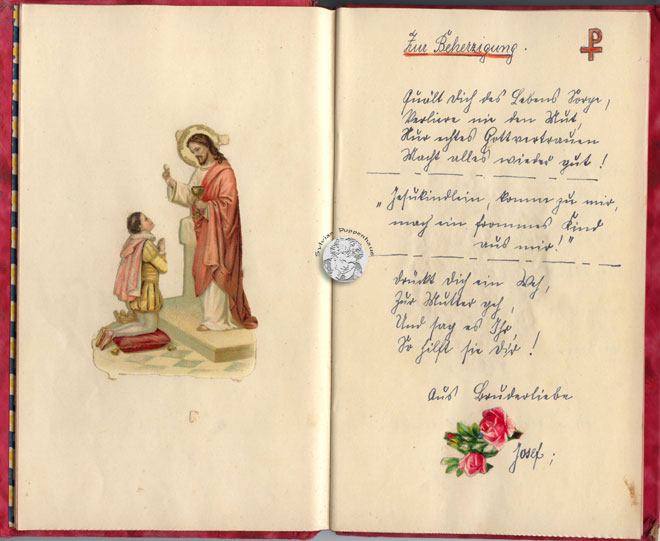 Zur Beherzigung.
Quält Dich des Lebens Sorge,
Verliere nie den Mut,
Nur echtes Gottvertrauen
Macht alles wieder gut!
„Jesukindlein, komm zu mir,
mach ein frommes Kind
aus mir!"
Drückt Dich ein Weh,
Zur Mutter geh,
Und sag es Ihr,
So hilft sie Dir!
Aus Bruderliebe
Josef;
Sylvias Puppenhaus